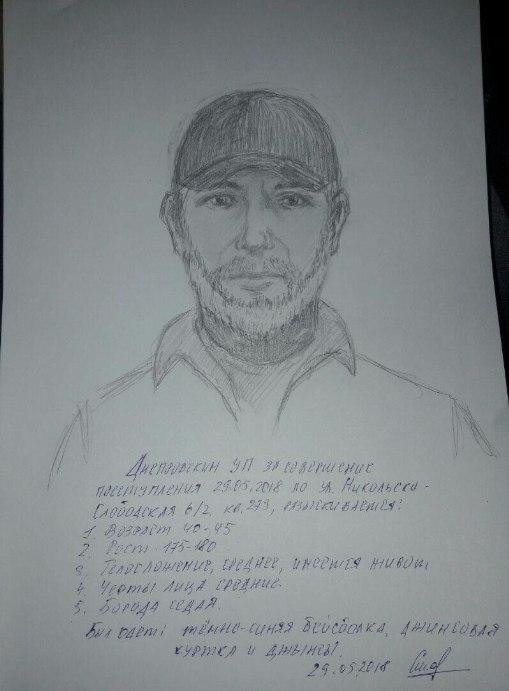 Днепровским УП за совершение
преступления 29.05.2018 по ул. Никольско-
Слободская 6/2, кв. 273, разыскивается:
1. Возраст 40-45
2. Рост 175-180
3. Телосложение, среднее, имеется живот
4. Черты лица средние.
5. Борода седая.
Был одет: тёмно-синяя бейсболка, джинсовая
куртка и джынсы.
29.05.2018